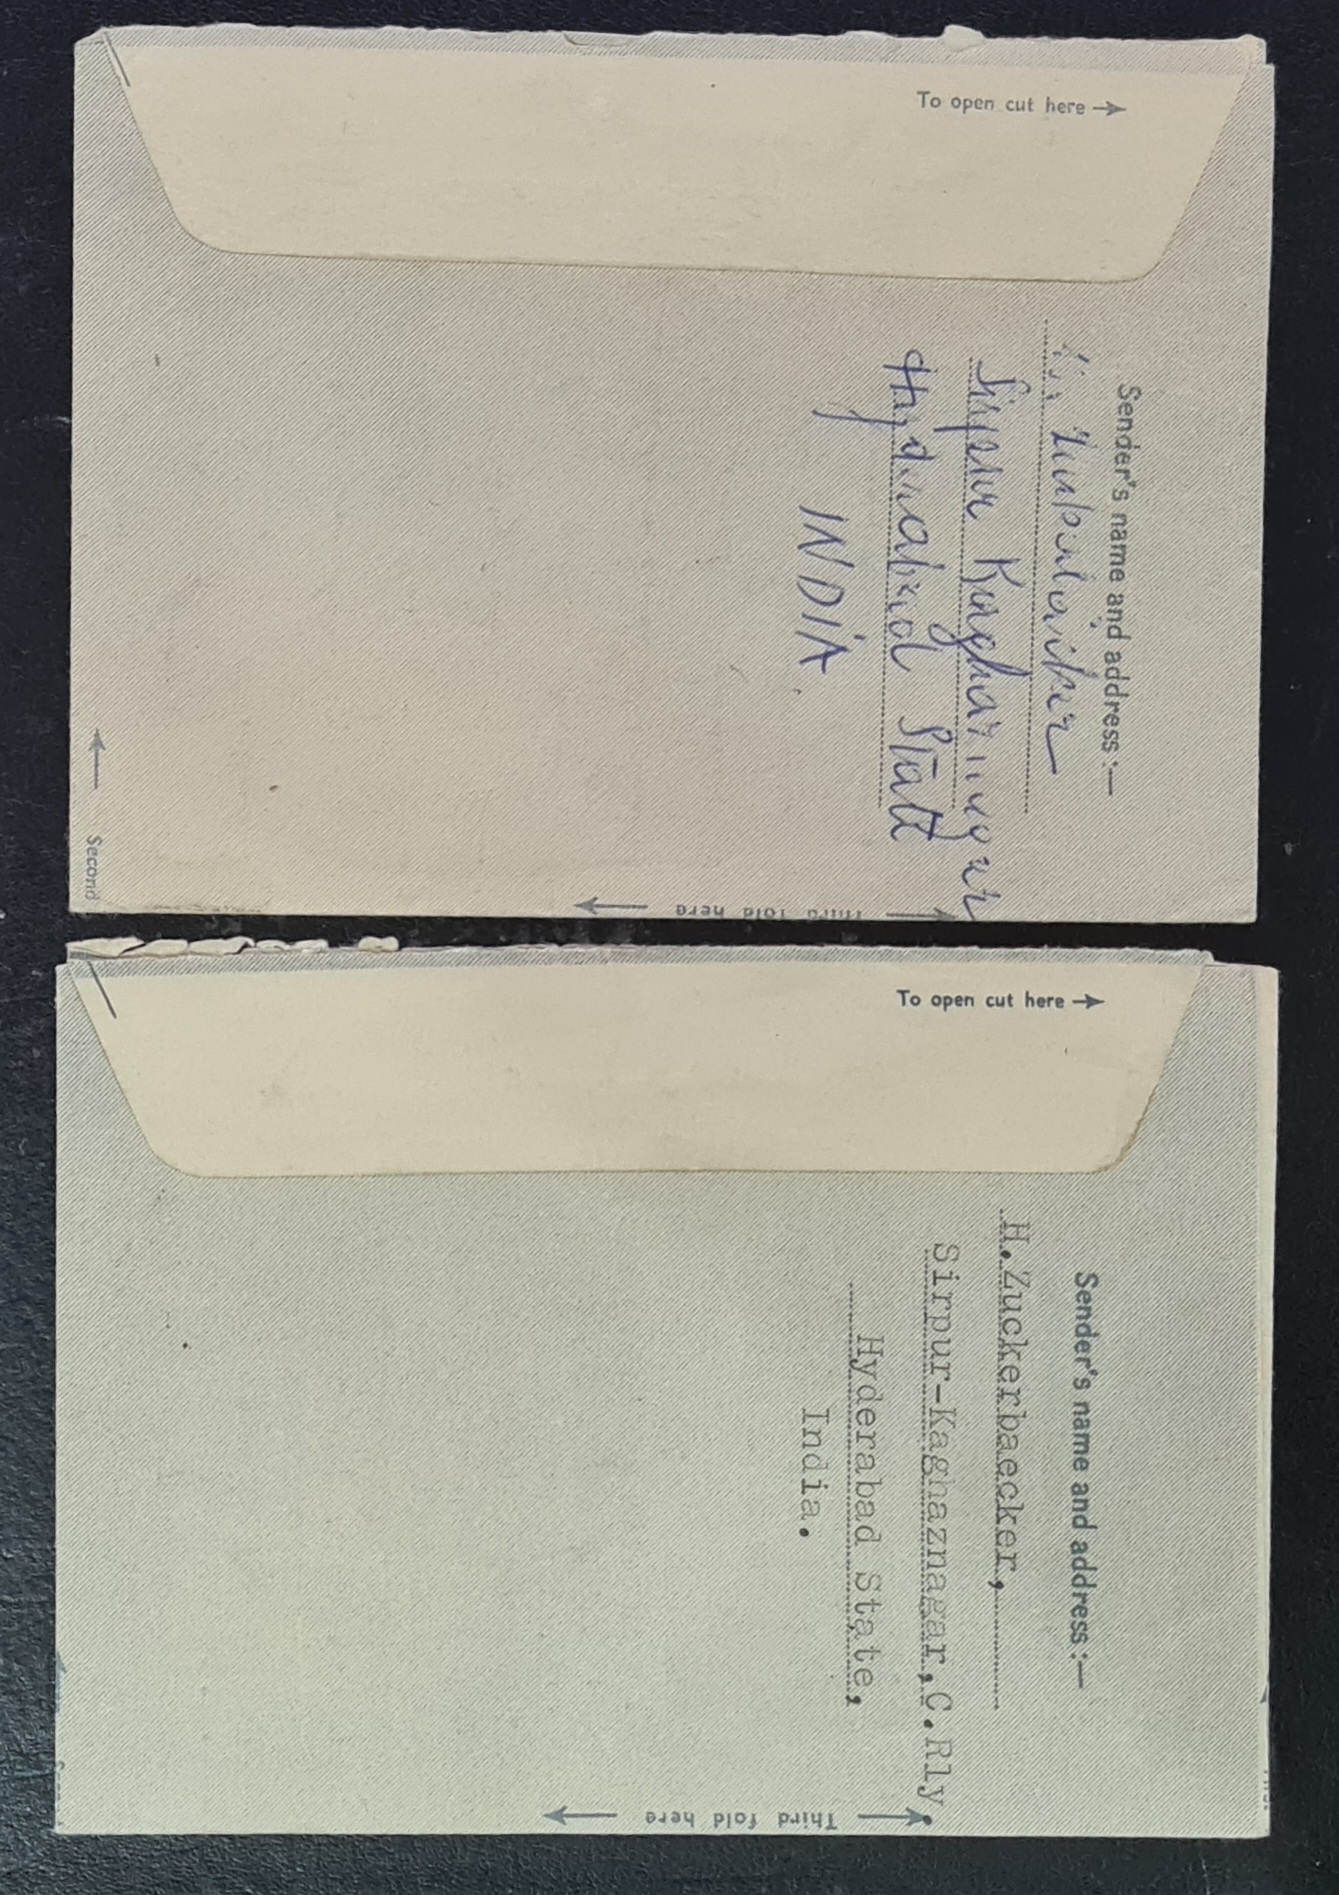 To open cut here
Sender's name and address :—
Zuckerbäcker
Sirpur Kaghaznagar
Hyderabad State
INDIA
Second
Third fold here
To open cut here
Sender's name and address :—
H.Zuckerbaecker,
Sirpur-Kaghaznagar,C.Rly.
Hyderabad State,
India.
Third fold here